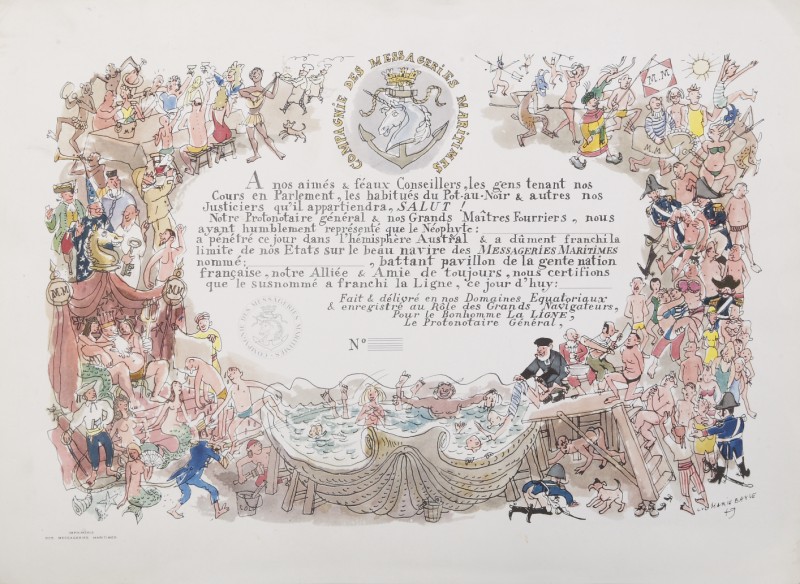 COMPAGNIE DES MESSAGERIES MARITIMES
M.M
M M
A nos aimés & féaux Conseillers, les gens tenant nos
Cours en Parlement, les habitués du Pot-au-Noir & autres nos
Justiciers qu'il appartiendra, SALUT !
Notre Protonotaire général & nos Grands Maîtres Fourriers, nous
ayant humblement représenté que le Néophyte:
a pénétré ce jour dans l'hémisphère Austral & a dûment franchi la
limite de nos Etats sur le beau navire des MESSAGERIES MARITIMES
nommé: , battant pavillon de la gente nation
française, notre Alliée & Amie de toujours, nous certifions
que le susnommé a franchi la Ligne, ce jour d'huy:
Fait & délivré en nos Domaines Equatoriaux
& enregistré au Rôle des Grands Navigateurs,
Pour le Bonhomme LA LIGNE,
Le Protonotaire Général,
MM
M
COMPAGNIE DES MESSAGERIES MARITIMES
N°
DES MESSAGERIES MARITIMES